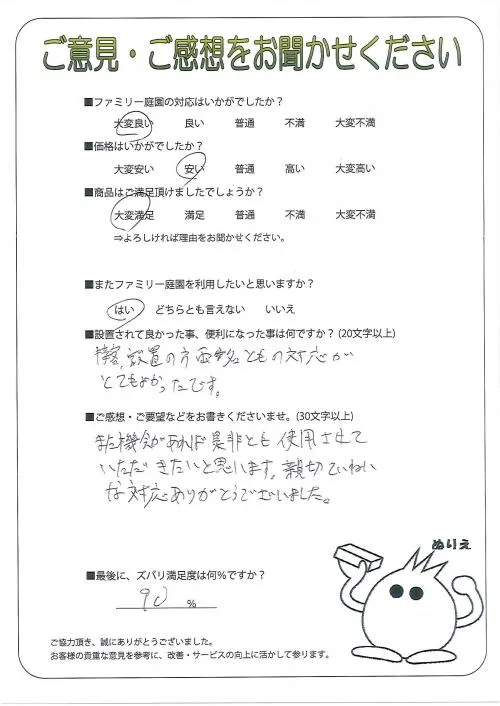 ご意見・ご感想をお聞かせください
■ファミリー庭園の対応はいかがでしたか?
大変良い 良い 普通 不満 大変不満
■価格はいかがでしたか?
大変安い 安い 普通 高い 大変高い
■商品はご満足頂けましたでしょうか?
大変満足 満足 普通 不満 大変不満
⇒よろしければ理由をお聞かせください。
■またファミリー庭園を利用したいと思いますか?
はい どちらとも言えない いいえ
■設置されて良かった事、便利になった事は何ですか? (20文字以上)
設置の方 ともの対応が
とてもよかったです。
■ご感想・ご要望などをお書きくださいませ。(30文字以上)
また機会があれば是非とも使用させて
いただきたいと思います。親切ていねい
な対応ありがとうございました。
ぬりえ
■最後に、ズバリ満足度は何%ですか?
90 %
ご協力頂き、誠にありがとうございました。
お客様の貴重な意見を参考に、改善・サービスの向上に活かして参ります。